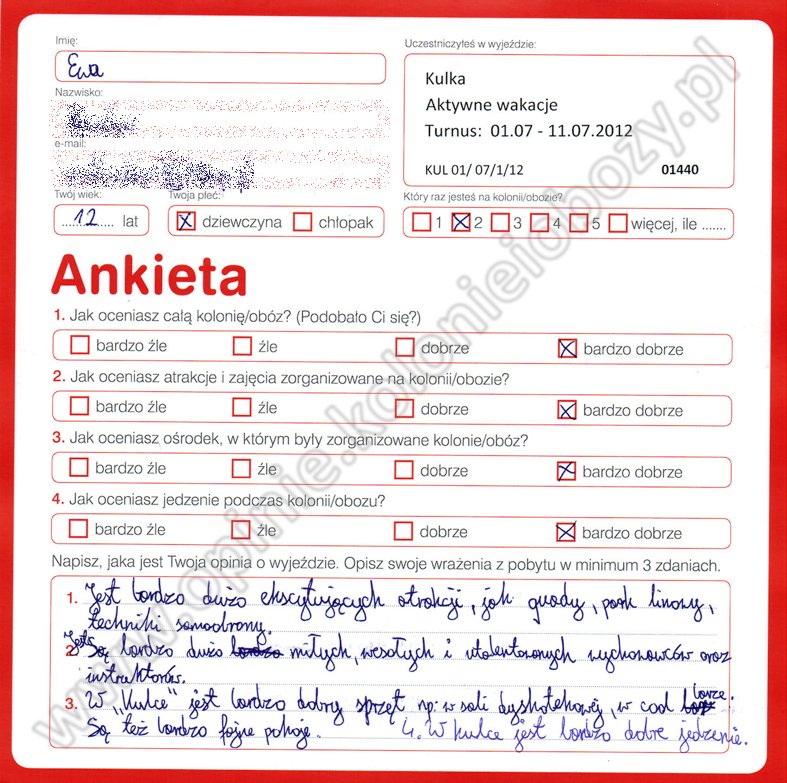 Imię:
Ewa
Nazwisko:
e-mail:
Uczestniczyłeś w wyjeździe:
Kulka
Aktywne wakacje
Turnus: 01.07 - 11.07.2012
KUL 01/ 07/1/12 01440
Twój wiek:
12 lat
Twoja płeć:
dziewczyna chłopak
Który raz jesteś na kolonii/obozie?
1 2 3 4 5 więcej, ile .......
Ankieta
1. Jak oceniasz całą kolonię/obóz? (Podobało Ci się?)
bardzo źle źle dobrze bardzo dobrze
2. Jak oceniasz atrakcje i zajęcia zorganizowane na kolonii/obozie?
bardzo źle źle dobrze bardzo dobrze
3. Jak oceniasz ośrodek, w którym były zorganizowane kolonie/obóz?
bardzo źle źle dobrze bardzo dobrze
4. Jak oceniasz jedzenie podczas kolonii/obozu?
bardzo źle źle dobrze bardzo dobrze
Napisz, jaka jest Twoja opinia o wyjeździe. Opisz swoje wrażenia z pobytu w minimum 3 zdaniach.
1. Jest bardzo dużo ekscytujących atrakcji, jak quady, park linowy,
techniki samoobrony.
2. Jest bardzo dużo miłych, wesołych i utalentowanych wychowawców oraz
instruktorów.
3. W "Kulce" jest bardzo dobry sprzęt np: w sali dyskotekowej, w cool barze.
Są też bardzo fajne pokoje. 4. W kulce jest bardzo dobre jedzenie.
www.opinie.kolonieiobozy.pl